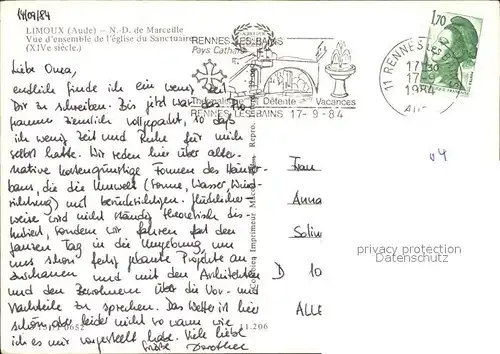 14/09/84
LIMOUX (Aude) - N.-D. de Marceille
Vue d'ensemble de l'église du Sanctuaire
(XIVe siècle.)
RENNES-LES-BAINS
Pays Cathare
Thermalisme Détente Vacances
RENNES-LES-BAINS 17-9-84
11 RENNES LES
17H30
17-9
1984
AUDE
1,70
Liebe Oma,
endlich finde ich ein wenig Zeit
Dir zu schreiben. Bis jetzt war das Pro
gramm ziemlich vollgepackt, so daß
ich wenig Zeit und Ruhe für mich
selbst hatte. Wir reden hier über alter-
native kostengünstige Formen des Häuser-
baus, die die Umwelt (Sonne, Wasser, Wind-
richtung) mit berücksichtigen. Glücklicher
weise wird nicht ständig theoretisch dis-
kutiert, sondern wir fahren fast den
ganzen Tag in die Umgebung, um
uns schon fertig gebaute Projekte an
zuschauen und mit den Architekten
und den Bewohnern über die Vor- und
Nachteile zu sprechen. Das Wetter ist hier
schön aber leider nicht so warm wie
ich es mir vorgestellt habe. Viele liebe
Grüße Dorothee
11.206
Imprimeur Repro.
04
Frau
Anna
D 10
ALLE
privacy protection
Datenschutz